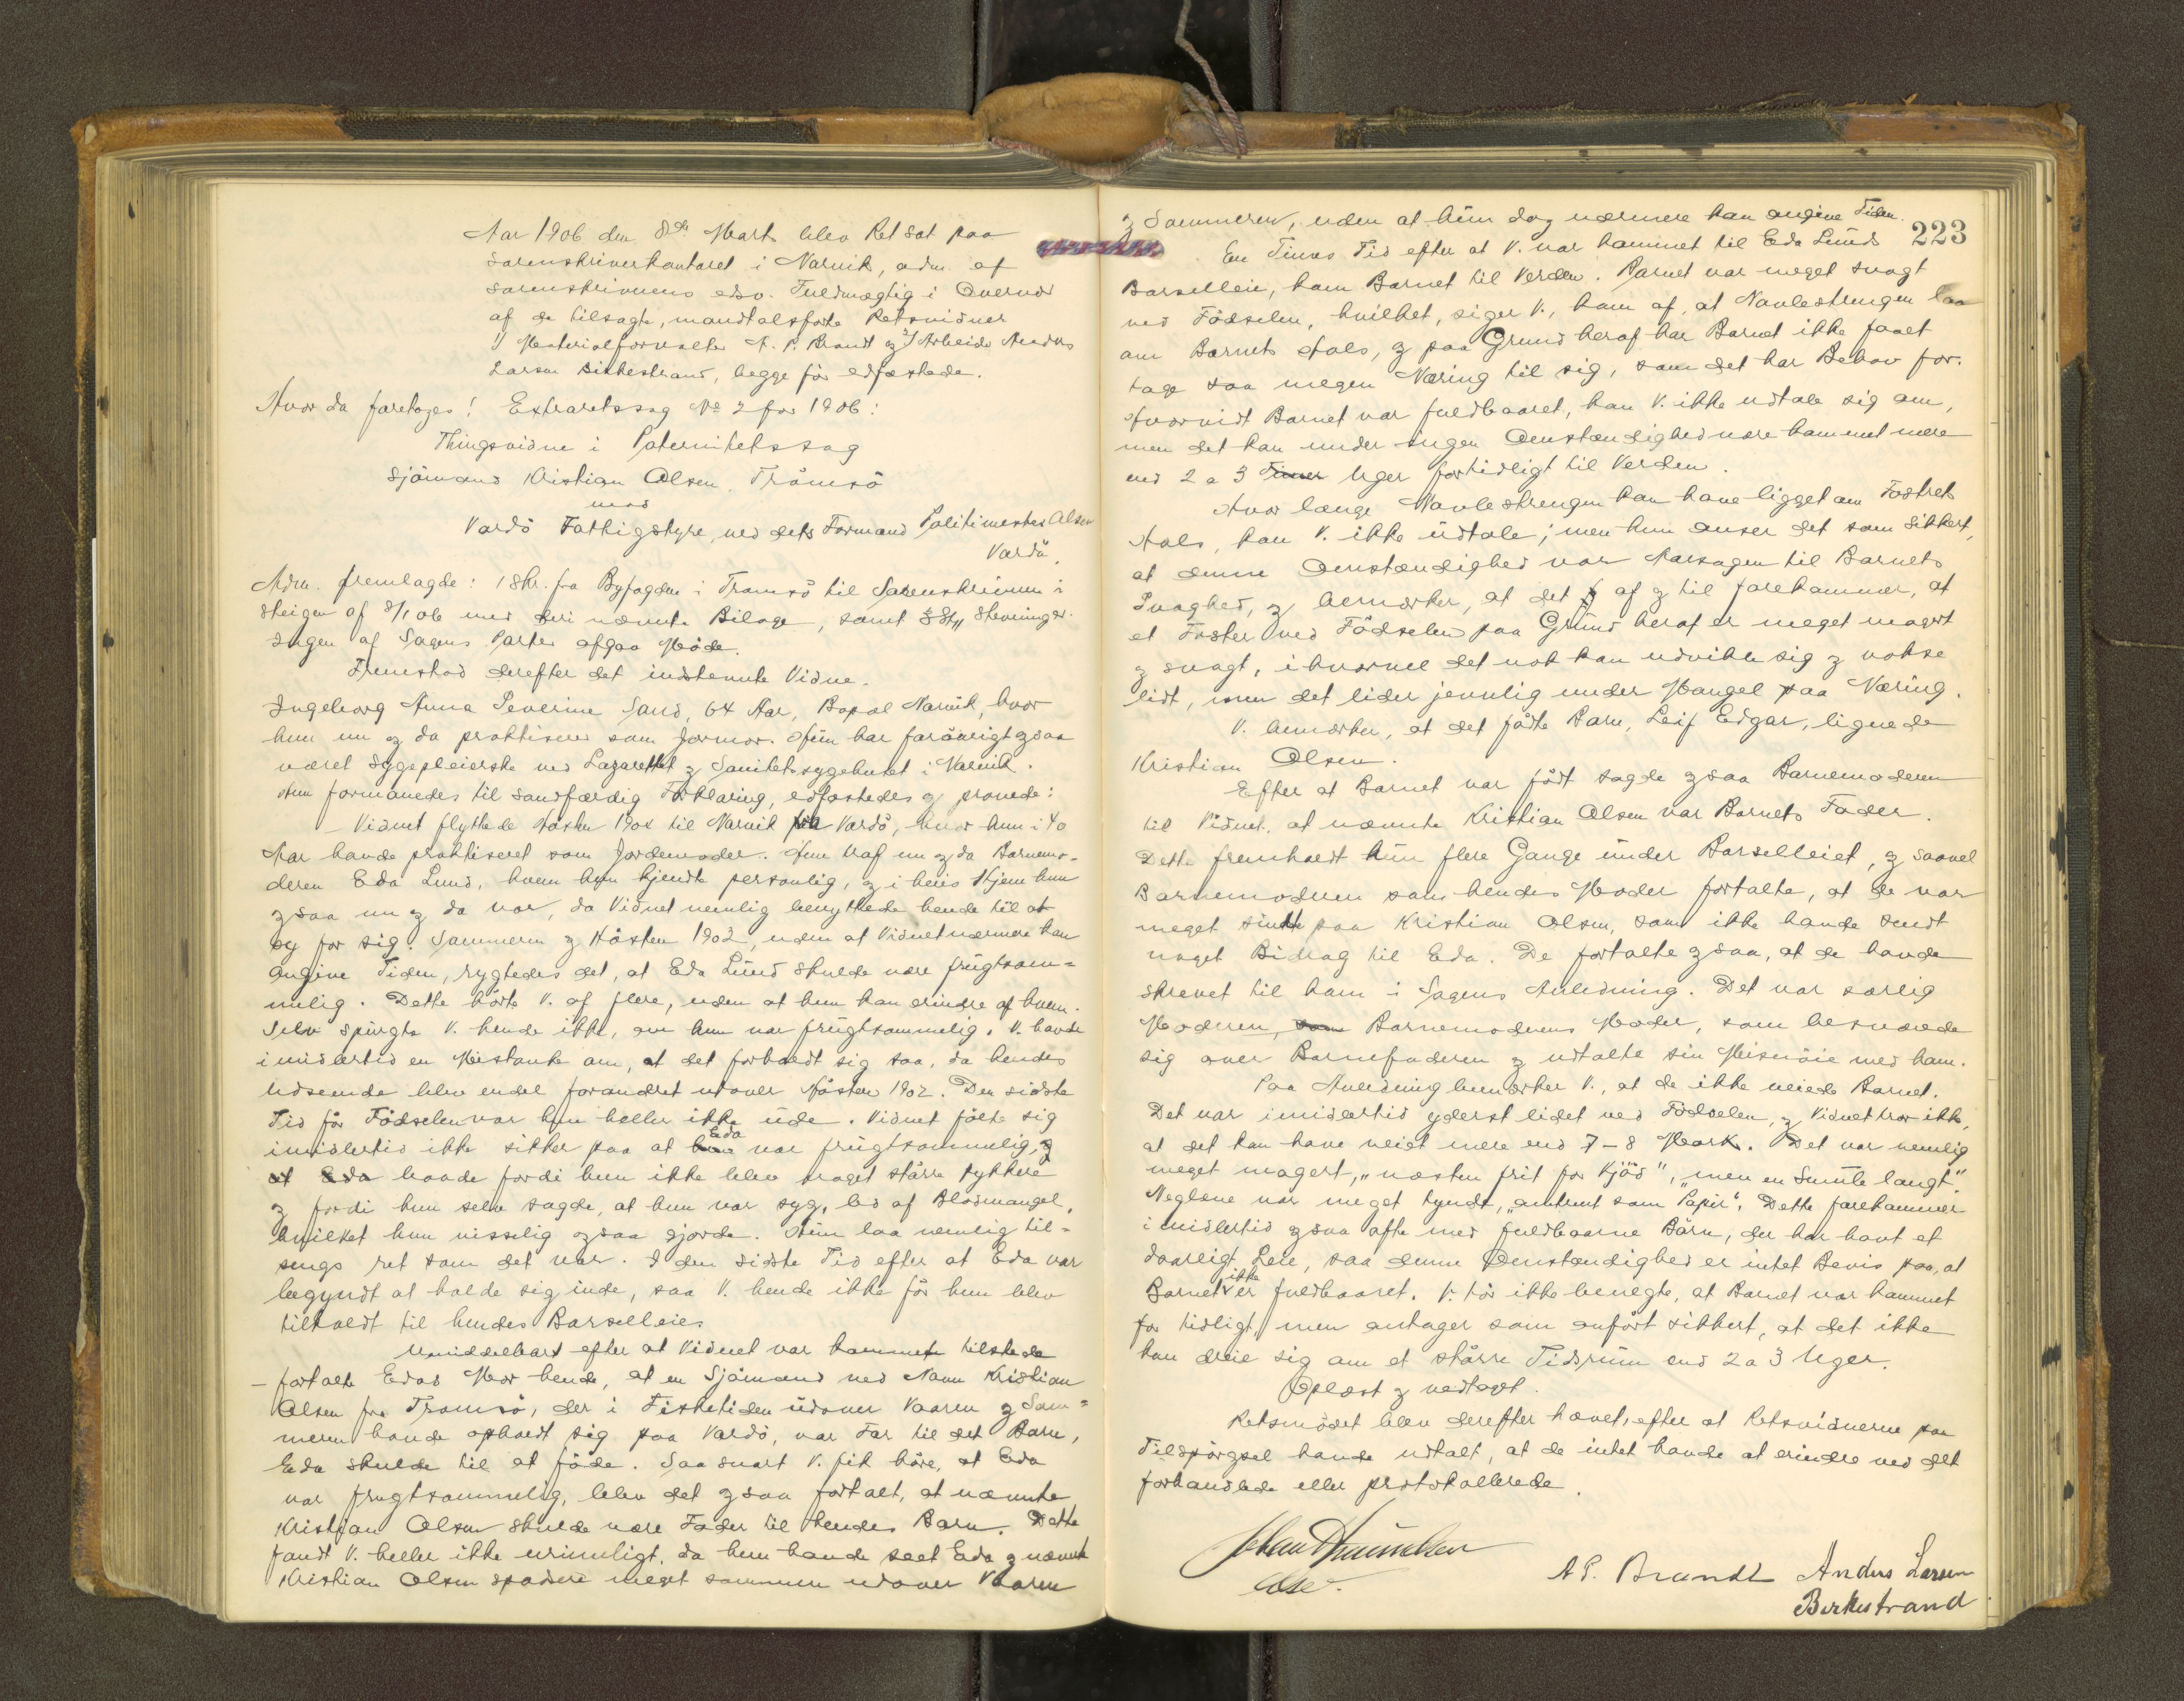 Aar 1906 den 8de Marts blev Ret sat paa
Sorenskriverkontoret i Narvik, adm. af
Sorenskriverens edsv. Fuldmægtig i Overvær
af de tilsagte, mandtalsførte Retsvidner
1) Materialforvalter A. P. Brandt og 2) Arbeider Anders
Larsen Birkestrand, begge før edfæstede.
Hvor da foretoges: Extraretssag No 2 for 1906:
Thingsvidne i Paternitetssag
Sjömand Kristian Olsen, Tromsö
mod
Vardö Fattigstyre, ved dets Formand Politimester Olsen
Vardö.
Adm. fremlagde: 1 Skr. fra Byfogden i Tromsö til Sorenskriveren i
Steigen af 8/1 06 med deri nævnte Bilage, samt Stevninger.
Ingen af Sagens Parter afgav Möde.
Fremstod derefter det indstevnte Vidne.
Ingeborg Anna Severine Sand, 64 Aar, Bopæl Narvik, hvor
hun nu og da praktiserer som Jormor. Hun har forövrigt ogsaa
været Sygepleierske ved Lazarettet og Sanitetssygehuset i Narvik.
Hun formanedes til sandfærdig Forklaring, edfæstedes og provede:
– Vidnet flyttede Hösten 1904 til Narvik fra Vardö, hvor hun i 40
Aar havde praktiseret som Jordemoder. Hun traf nu og da Barnemo-
deren Eda Lund, hvem hun kjendte personlig, og i hvis Hjem hun
ogsaa nu og da var, da Vidnet nemlig benyttede hende til at
sy for sig. Sommeren og Hösten 1902, uden at Vidnet nærmere kan
angive Tiden, rygtedes det, at Eda Lund skulde være frugtsom-
melig. Dette hörte V. af flere, uden at hun kan erindre af hvem.
Selv spurgte V. hende ikke, om hun var frugtsommelig. V. havde
imidlertid en Mistanke om, at det forholdt sig saa, da hendes
Udseende blev endel forandret utover Hösten 1902. Den sidste
Tid för Födselen var hun heller ikke ude. Vidnet fölte sig
imidlertid ikke sikker paa at Eda var frugtsommelig,
at Eda havde fordi hun ikke blev noget större tykkere
og fordi hun selv sagde, at hun var syg, led af Blodmangel,
hvilket hun visselig ogsaa gjorde. Hun laa nemlig til-
sengs ret som det var. I den sidste Tid efter at Eda var
begyndt at holde sig inde, saa V. hende ikke för hun blev
tilkaldt til hendes Barselleie.
Umiddelbart efter at Vidnet var kommet tilstede
– fortalte Edas Mor hende, at en Sjömand ved Navn Kristian
Olsen fra Tromsö, der i Fisketiden udover Vaaren og Som-
meren havde opholdt sig paa Vardö, var Far til det Barn,
Eda skulde til at föde. Saa snart V. fik höre, at Eda
var frugtsommelig, blev det ogsaa fortalt, at nævnte
Kristian Olsen skulde være Fader til hendes Barn. Dette
fandt V. heller ikke urimeligt, da hun havde seet Eda og nævnte
Kristian Olsen spadsere meget sammen udover Vaaren
223
og Sommeren, uden at hun dog nærmere kan angive Tiden.
En Times Tid efter at V. var kommet til Eda Lunds
Barselleie, kom Barnet til Verden. Barnet var meget svagt
ved Födselen, hvilket, siger V., kom af, at Navlestrengen laa
om Barnets Hals, og paa Grund heraf har Barnet ikke faaet
tage saa megen Næring til sig, som det har Behov for.
Hvorvidt Barnet var fuldbaaret, kan V. ikke udtale sig om,
men det kan under ingen Omstændighed være kommet mere
end 2 a 3 Timer Uger fortidligt til Verden.
Hvor længe Navlestrengen kan have ligget om Fostrets
Hals, kan V. ikke udtale; men hun anser det som sikkert,
at denne Omstændighed var Aarsagen til Barnets
Svaghed, og bemærker, at det af og til forekommer, at
et Foster ved Födselen paa Grund heraf er meget magert
og svagt, ihvorvel det nok kan udvikle sig og vokse
lidt, men det lider jevnlig under Mangel paa Næring.
V. bemærker, at det födte Barn, Leif Edgar, lignede
Kristian Olsen.
Efter at Barnet var födt sagde ogsaa Barnemoderen
til Vidnet, at nævnte Kristian Olsen var Barnets Fader.
Dette fremholdt hun flere Gange under Barselleiet, og saavel
Barnemoderen som hendes Moder fortalte, at de var
meget sinte paa Kristian Olsen, som ikke havde sendt
noget Bidrag til Eda. De fortalte ogsaa, at de havde
skrevet til ham i Sagens Anledning. Det var særlig
Moderen, som Barnemoderens Moder, som besværede
sig over Barnefaderen og udtalte sin Misnöie med ham.
Paa Anledning bemærker V., at de ikke veiede Barnet.
Det var imidlertid yderst lidet ved Födselen, og Vidnet tror ikke,
at det kan have veiet mere end 7–8 Mark. Det var nemlig
meget magert, „næsten frit for Kjöd", „men en Smule langt".
Neglene var meget tynde, „omtrent som Papir". Dette forekommer
imidlertid ogsaa ofte med fuldbaarne Börn, der har havt et
daarligt Leie, saa denne Omstændighed er intet Bevis paa, at
Barnet ikke er fuldbaaret. V. tör ikke benegte, at Barnet var kommet
for tidligt, men antager som anfört sikkert, at det ikke
kan dreie sig om et större Tidsrum end 2 a 3 Uger.
Oplæst og vedtaget.
Retsmödet blev derefter hævet, efter at Retsvidnerne paa
Tilspörgsel havde udtalt, at de intet havde at erindre ved det
forhandlede eller protokollerede.
A P. Brandt Anders Larsen
Birkestrand